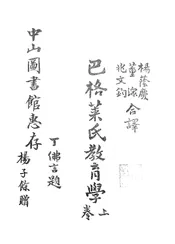 楊蔭慶
董溶
兆文鈞
合譯
巴格萊氏教育學
上卷
丁佛言題
中山圖書館惠存
楊子餘贈